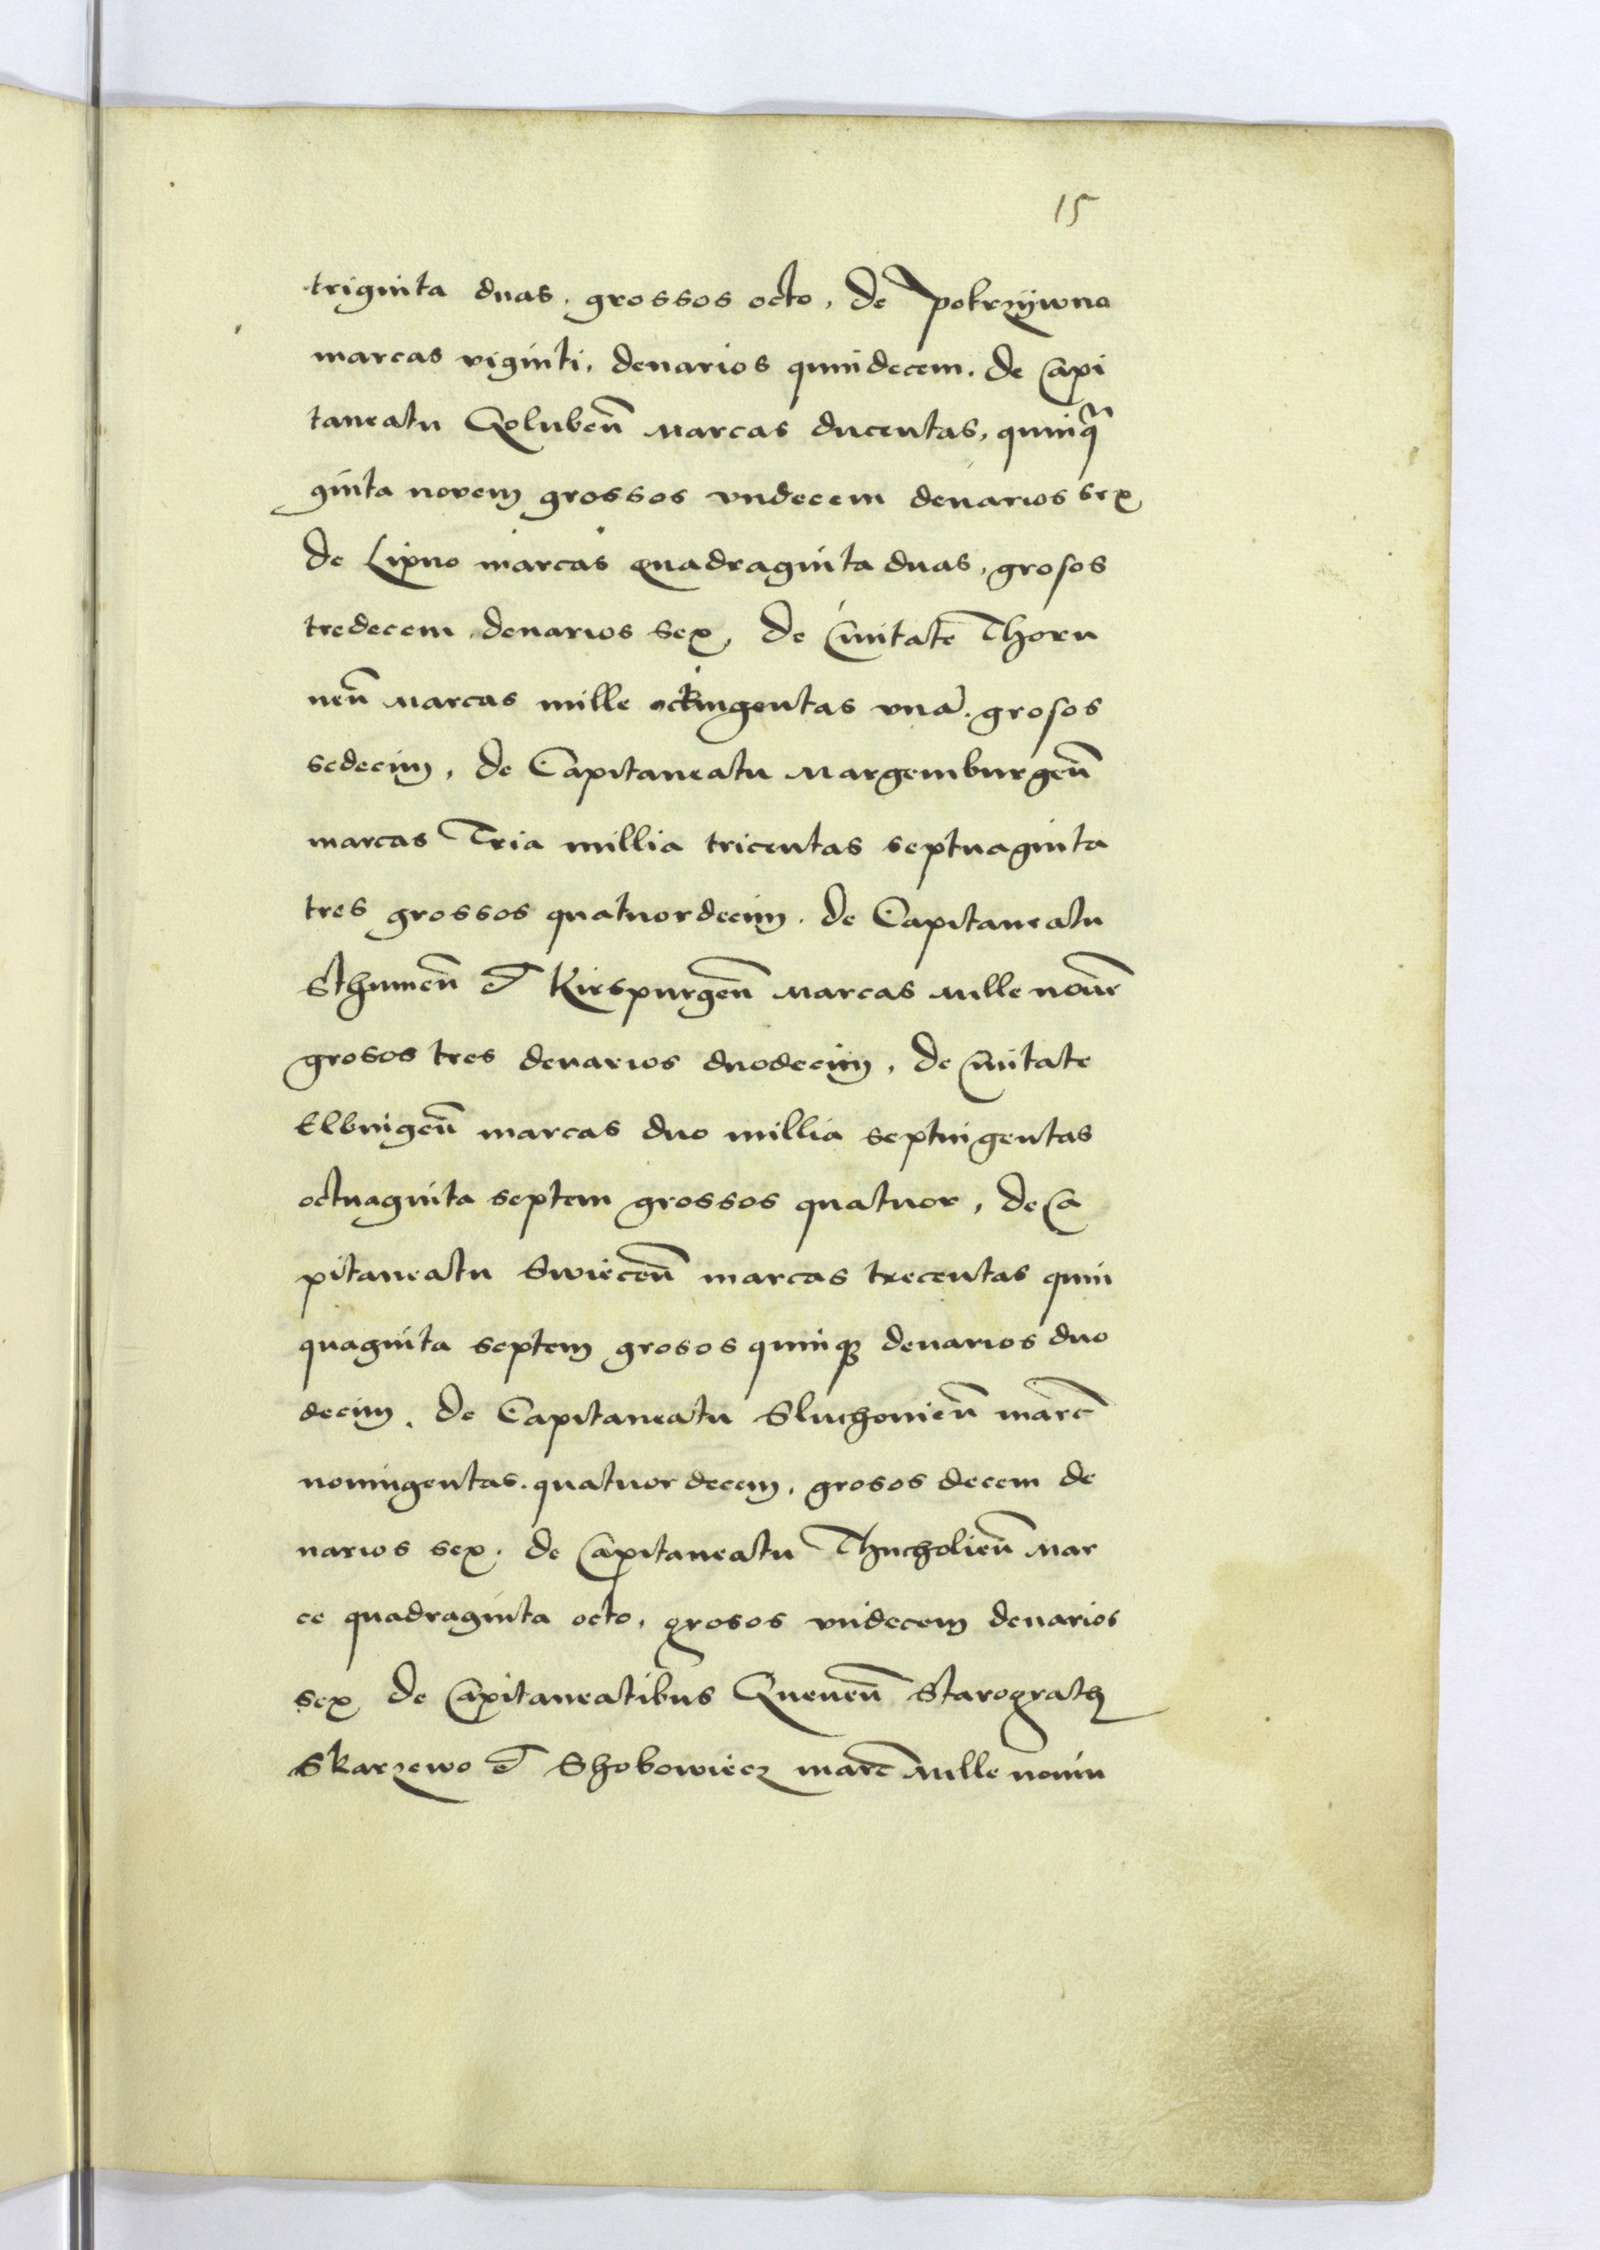 15
triginta duas, grossos octo, de Pokrzÿwno
marcas viginti, denarios quindecem. de Capi
taneatu Golubeñ Marcas ducentas, quinqᵃ
ginta novem grossos vndecem denarios sex
de Lipno marcas quadraginta duas, grosos
tredecem denarios sex, de Ciuitate Thoru
neñ Marcas mille octingentas vnā. grosos
sedecim, de Capitaneatu Margemburgeñ
marcas Tria millia tricentas septuaginta
tres grossos quatuordecim. de Capitaneatu
Sthumeñ et Kirspurgeñ Marcas Mille
grosos tres denarios duodecim, de Ciuitate
Elbingeñ marcas duo millia septingentas
octuaginta septem grossos quatuor, de Ca
pitaneatu Swieceñ marcas trecentas quin
quaginta septem grosos quinqꝫ denarios duo
decim. de Capitaneatu Sluchovieñ marc̃
noningentas. quatuordecem, grosos decem de
narios sex. de Capitaneatu Thucholieñ Mar
ce quadraginta octo, grosos vndecem denarios
sex de Capitaneatibus Gneueñ Starograth
Skarzewo et Shobowiecz marc̃ Mille nonin